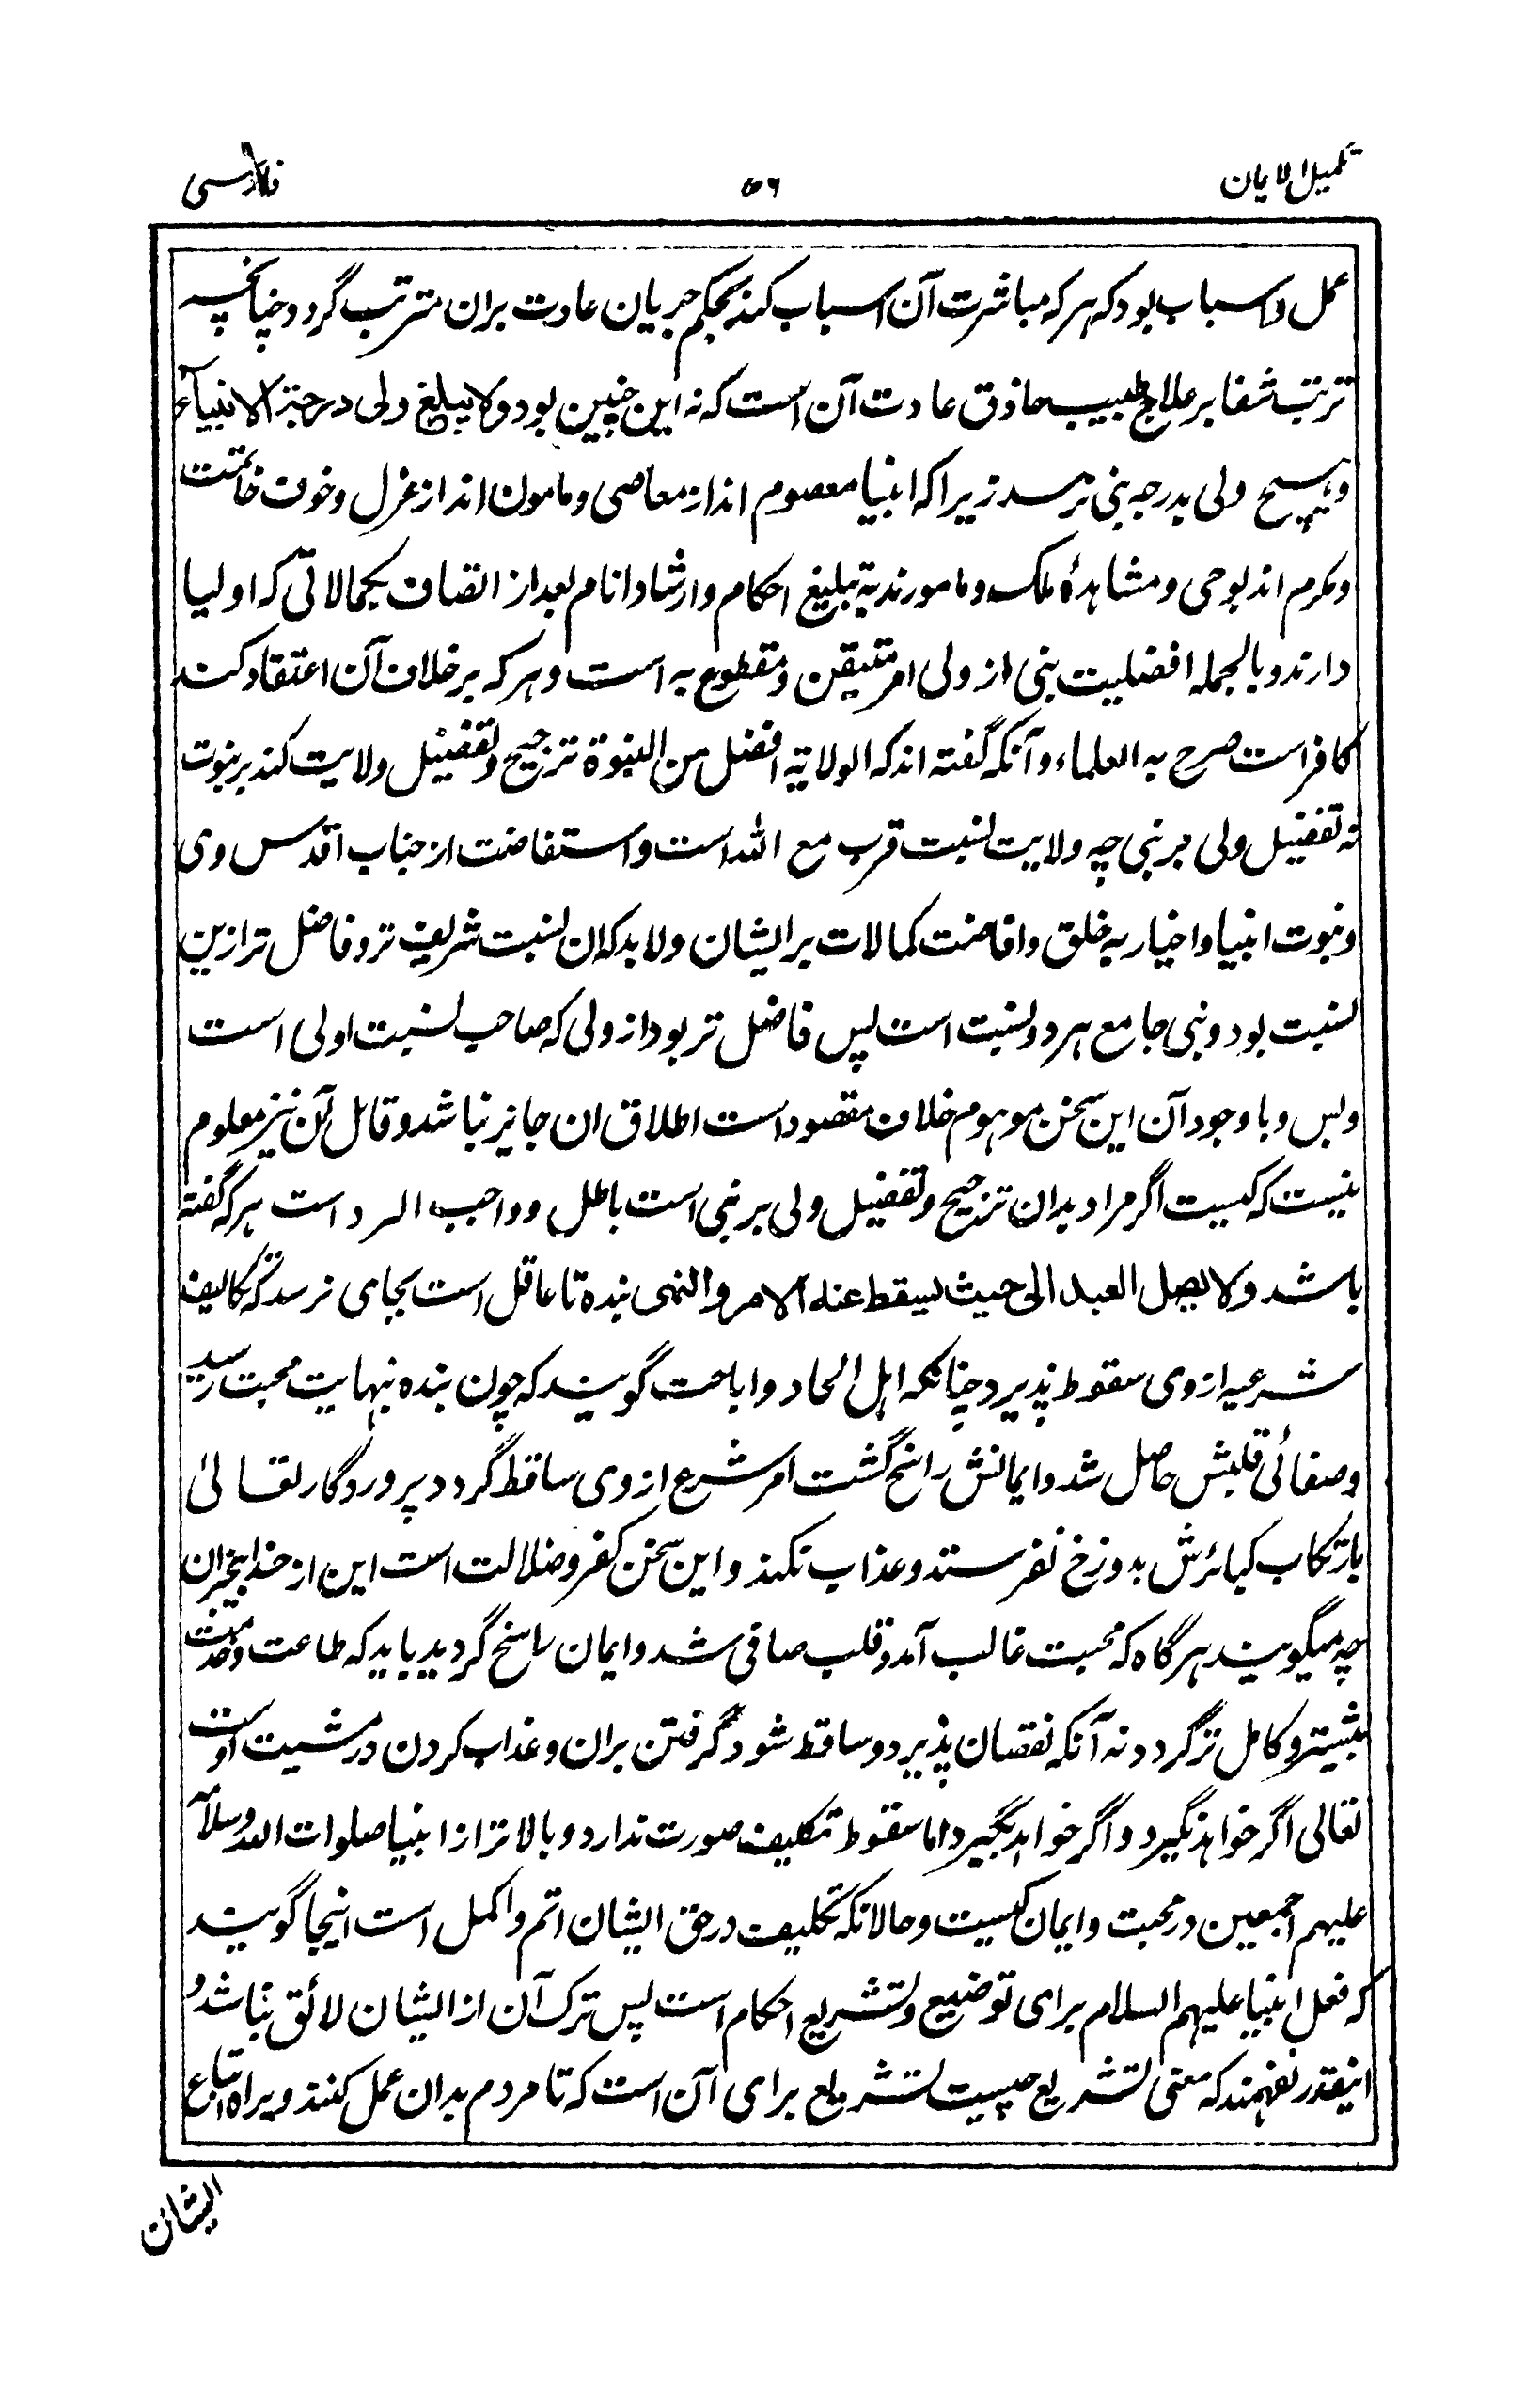 تکمیل الایمان
۵۶
فارسی
عمل و اسباب بود که هر که مباشرت آن اسباب کند بحکم جریان عادت بران مترتب گردد چنانچه
ترتب شفا بر علاج طبیب حاذق عادت آن است که نه این چنین بود ولا یبلغ ولی درجة الانبیاء
و هیچ ولی بدرجه نبی نرسد زیرا که انبیا معصوم اند از معاصی و مامون اند از عزل و خوف خاتمت
و مکرم اند بوحی و مشاهدهٔ ملک و مامورند به تبلیغ احکام و ارشاد انام بعد از اتصاف بکمالاتی که اولیا
دارند و بالجمله افضلیت نبی از ولی امر متیقن و مقطوع به است و هر که برخلاف آن اعتقاد کند
کافر است صرح به العلماء و آنکه گفته اند که الولایة افضل من النبوة ترجیح و تفضیل ولایت کند بر نبوت
نه تفضیل ولی بر نبی چه ولایت نسبت قرب مع الله است و استفاضت از جناب اقدس وی
و نبوت انبیا و اخیار به خلق و افاضت کمالات بر ایشان ولابد که ان نسبت شریف تر و فاضل تر ازین
نسبت بود و نبی جامع هر دو نسبت است پس فاضل تر بود از ولی که صاحب نسبت اولی است
و بس و با وجود آن این سخن موهوم خلاف مقصود است اطلاق ان جایز نباشد و قائل آن نیز معلوم
نیست که کیست اگر مراد بدان ترجیح و تفضیل ولی بر نبی است باطل و واجب الرد است هر که گفته
باشد ولا یصل العبد الی حیث یسقط عنه الامر والنهی بنده تا عاقل است بجای نرسد که تکالیف
شرعیه از وی سقوط پذیرد چنانکه اهل الحاد و اباحت گویند که چون بنده بنهایت محبت رسید
و صفائی قلبش حاصل شد و ایمانش راسخ گشت امر شرع از وی ساقط گردد پروردگار تعالیٰ
بارتکاب کبائرش بدوزخ نفرستد و عذاب نکند و این سخن کفر و ضلالت است این از خدا بیخبران
چه میگویند هرگاه که محبت غالب آمد و قلب صافی شد و ایمان راسخ گردید باید که طاعت و خدمت
بیشتر و کامل تر گردد نه آنکه نقصان پذیرد و ساقط شود گرفتن بران و عذاب کردن در مشیت اوست
تعالی اگر خواهد نگیرد و اگر خواهد بگیرد اما سقوط تکلیف صورت ندارد و بالاتر از انبیا صلوات الله و سلامه
علیهم اجمعین در محبت و ایمان کیست و حالانکه تکلیف در حق ایشان اتم و اکمل است اینجا گویند
که فعل انبیا علیهم السلام برای توضیح و تشریع احکام است پس ترک آن از ایشان لائق نباشد و
اینقدر نفهمند که معنی تشریع چیست تشریع برای آن است که تا مردم بدان عمل کنند و براه اتباع
ایشان